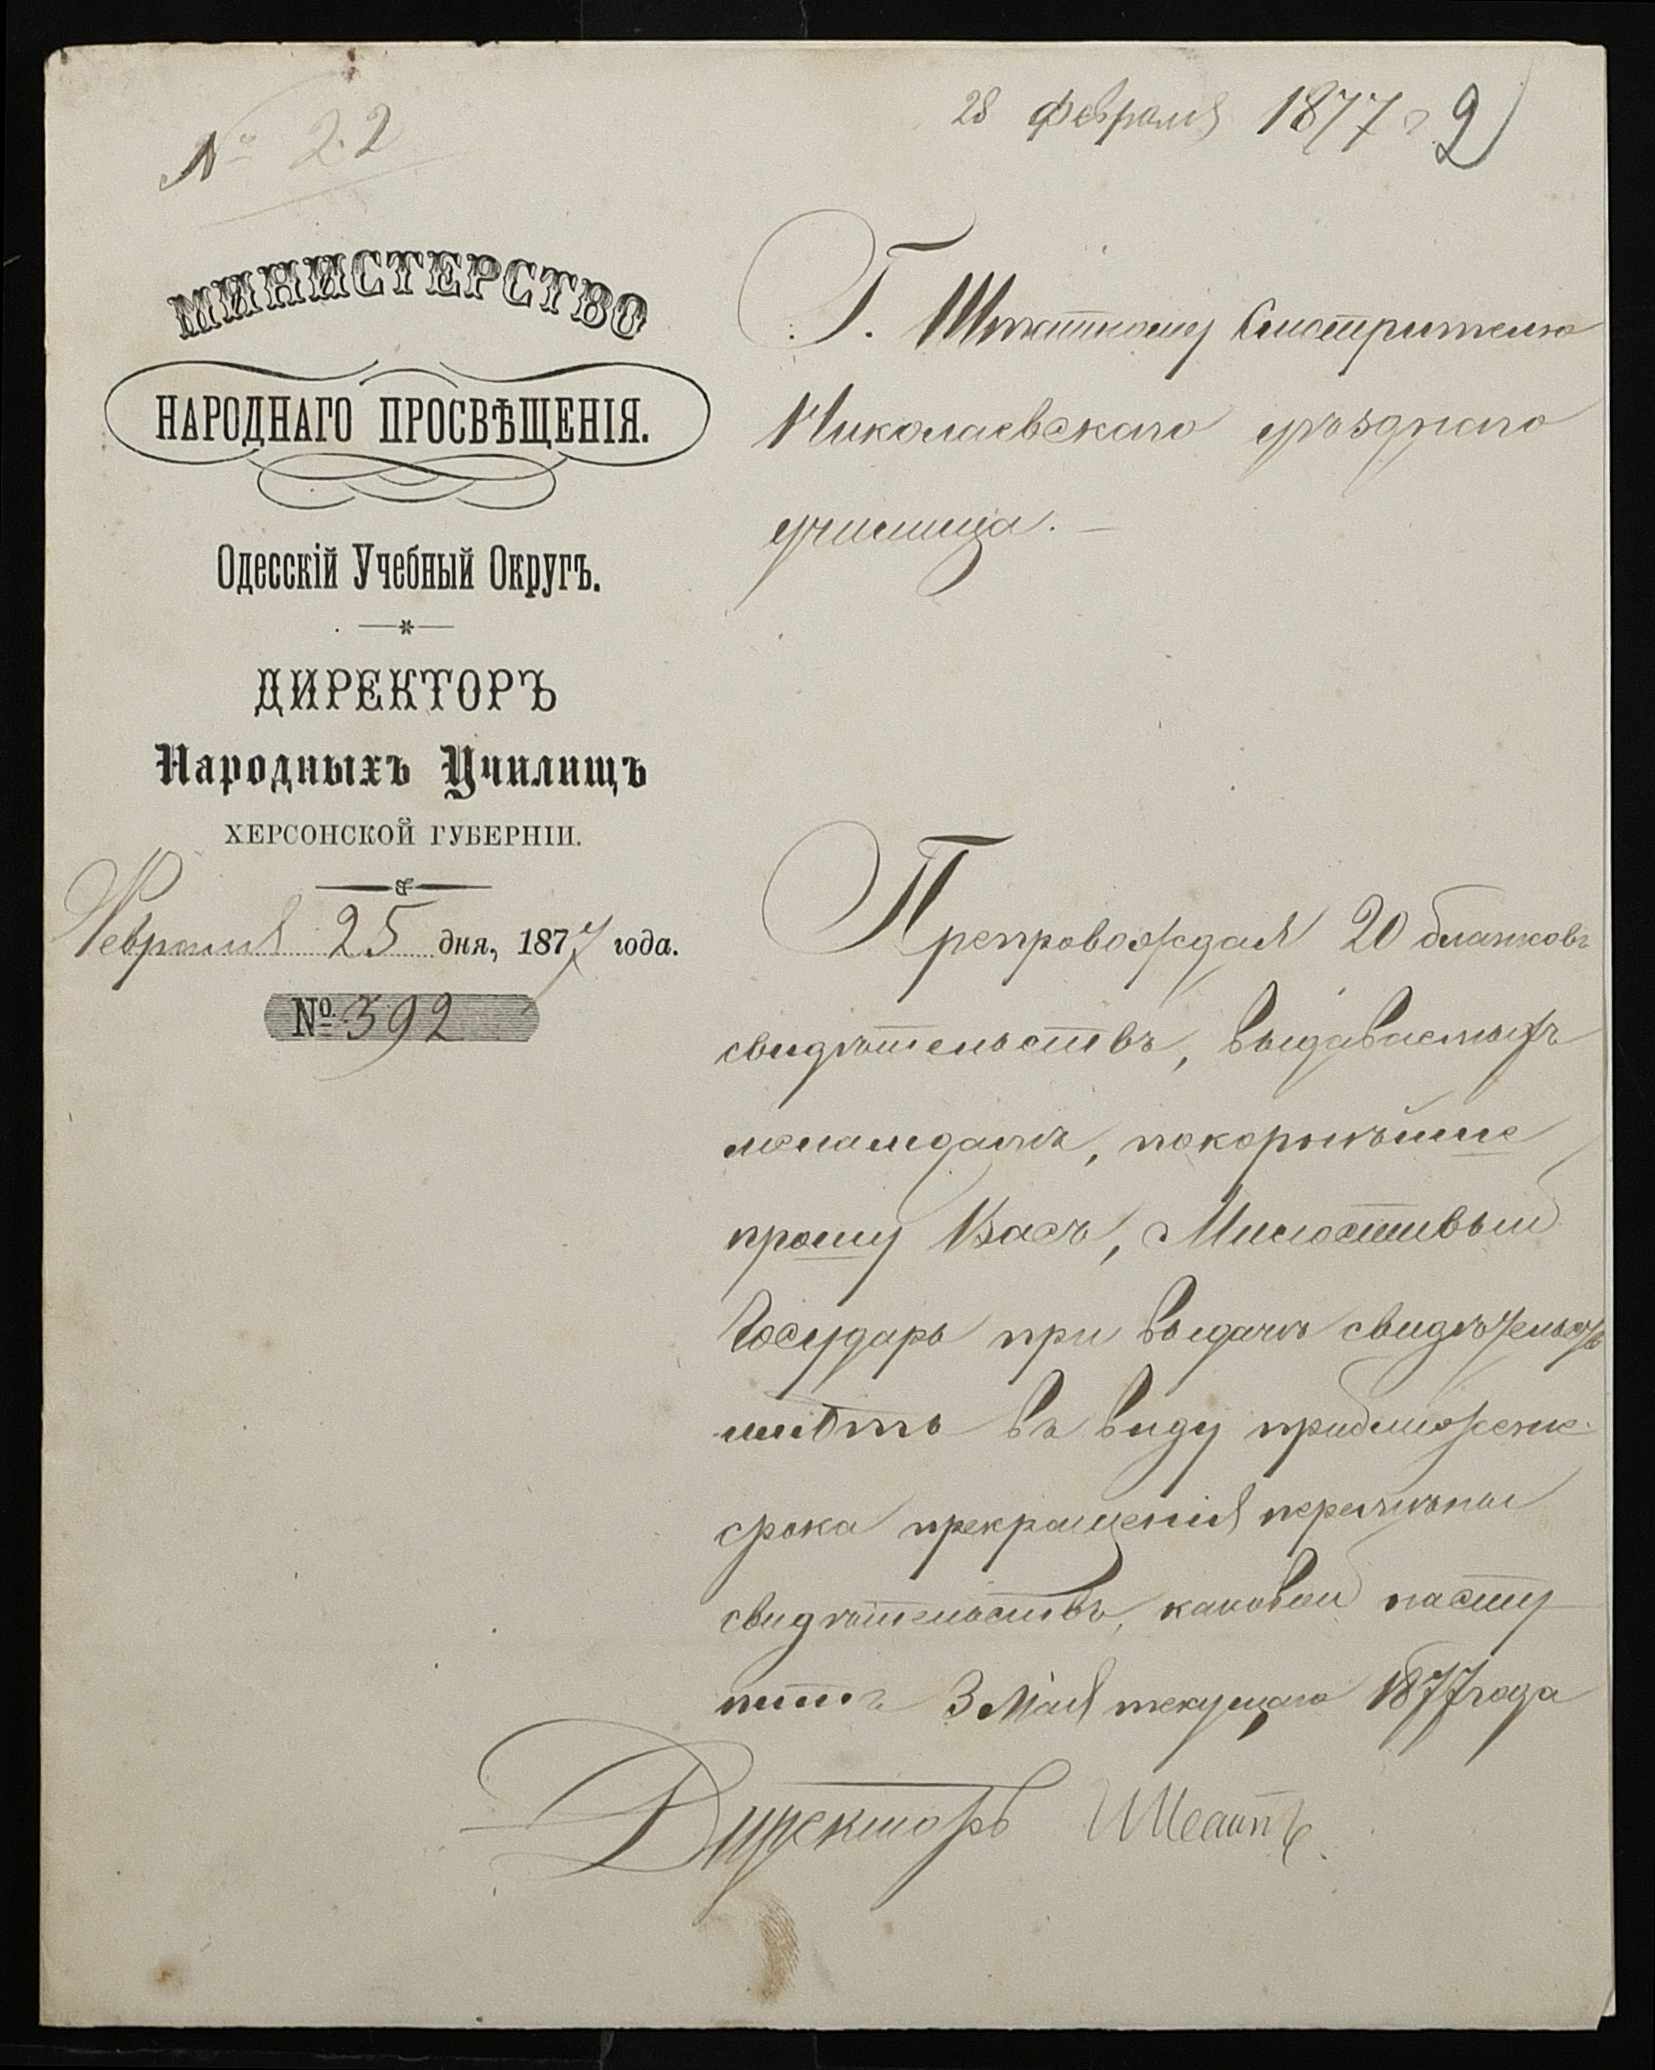 № 22
28 Февраля 1877 г 2
МИНИСТЕРСТВО
НАРОДНАГО ПРОСВѢЩЕНІЯ.
Одесскій Учебный Округъ.
ДИРЕКТОРЪ
Народныхъ Училищъ
ХЕРСОНСКОЙ ГУБЕРНІИ.
Февраля 25 дня, 1877 года.
№ 392
Г. Штатному Смотрителю
Николаевскаго уѣзднаго
училища. –
Препровождая 20 бланковъ
свидѣтельствъ, выдаваемыхъ
покорнѣйше
прошу Васъ, Милостивый
Государь при выдачѣ свидѣтельствъ
имѣть въ виду приближеніе
срока прекращенія перемѣны
свидѣтельствъ, каковой насту
питъ 3 Мая текущаго 1877 года
Директоръ